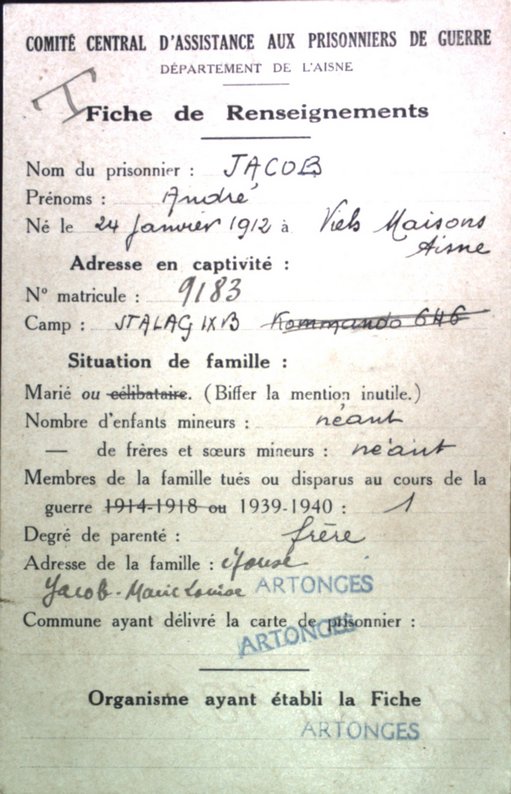 COMITÉ CENTRAL D'ASSISTANCE AUX PRISONNIERS DE GUERRE
DÉPARTEMENT DE L'AISNE
T
Fiche de Renseignements
Nom du prisonnier : JACOB
Prénoms : André
Né le 24 Janvier 1912 à Viels Maisons
Aisne
Adresse en captivité :
N° matricule : 9183
Camp : STALAG IX B Kommando 646
Situation de famille :
Marié ou célibataire. (Biffer la mention inutile.)
Nombre d'enfants mineurs : néant
— de frères et sœurs mineurs : néant
Membres de la famille tués ou disparus au cours de la
guerre 1914-1918 ou 1939-1940 : 1
Degré de parenté : frère
Adresse de la famille :
Jacob - Marie Louise ARTONGES
Commune ayant délivré la carte de prisonnier :
ARTONGES
Organisme ayant établi la Fiche
ARTONGES